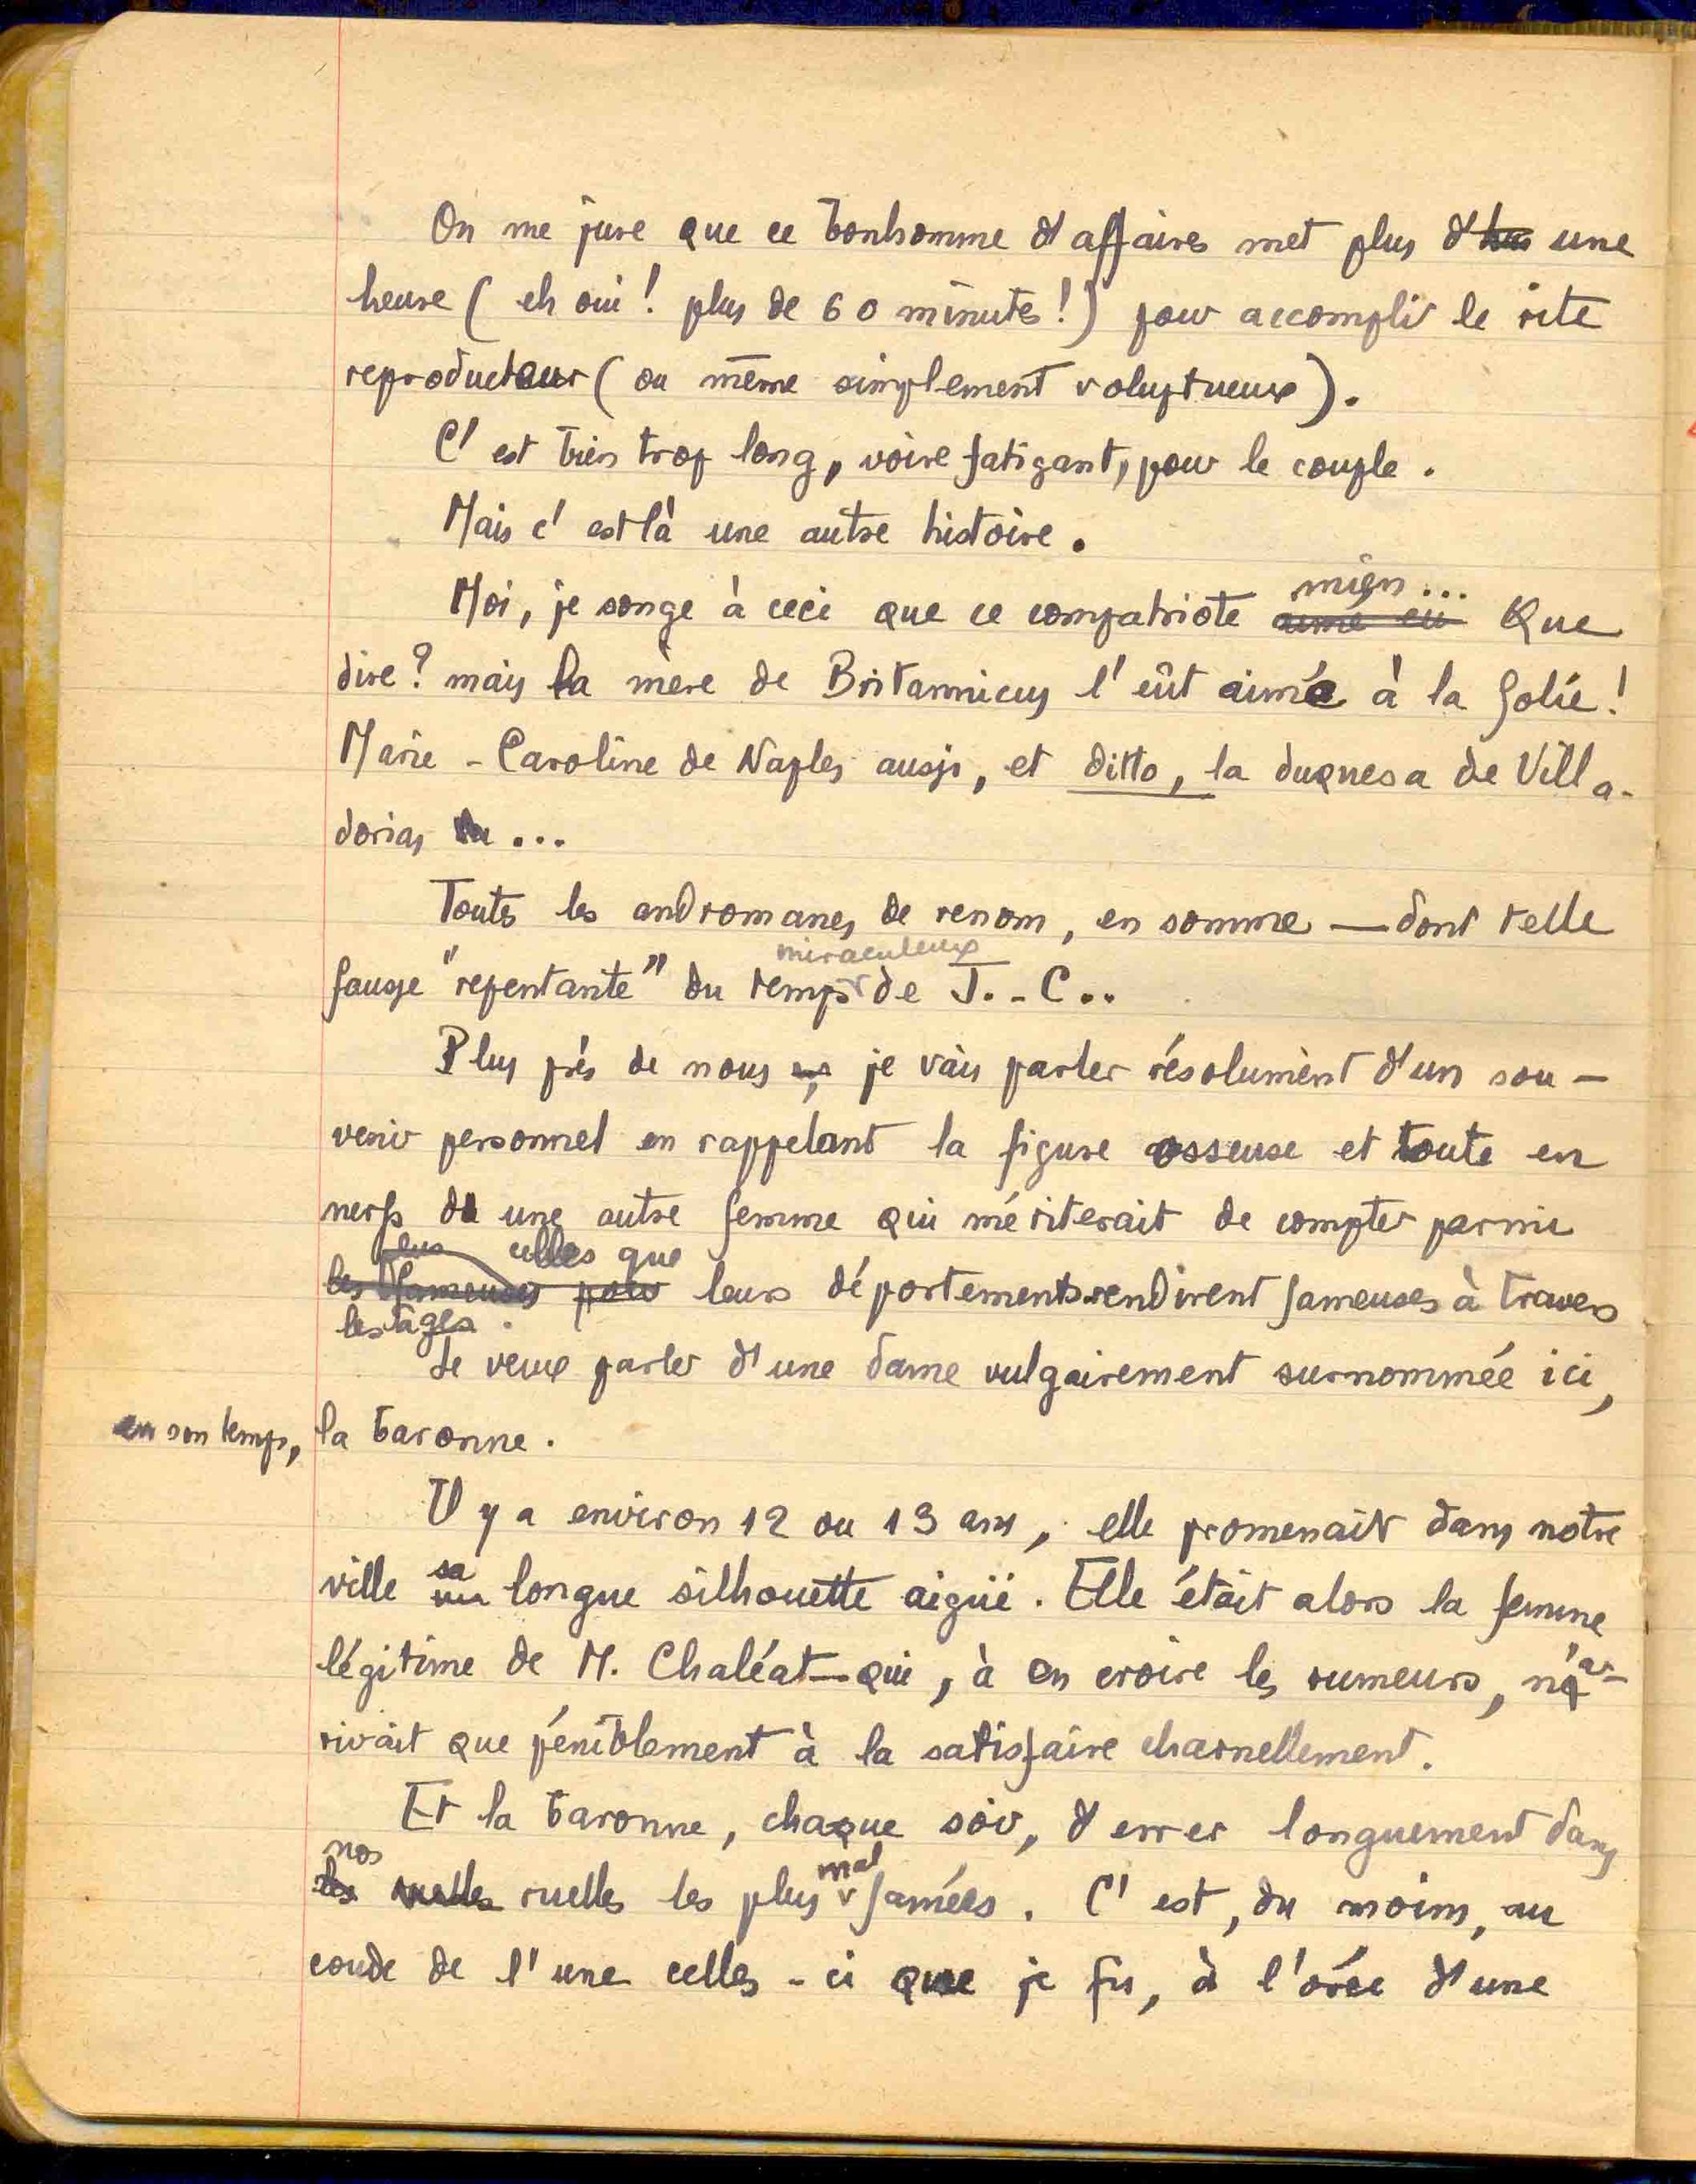 On me jure que ce bonhomme d'affaires met plus d' une
heure ( eh oui ! plus de 60 minutes ! ) pour accomplir le rite
reproducteur ( ou même simplement voluptueux ) .
C' est très trop long, voire fatigant, pour le couple .
Mais c' est là une autre histoire .
mien ...
Moi, je songe à ceci que ce compatriote aimé eu Que
dire ? mais la mère de Britannicus l' eût aimé à la folie !
Marie - Caroline de Naples aussi, et ditto, la duquesa de Villa-
dorias ...
Toutes les andromanes de renom, en somme — dont telle
miraculeux
fausse "repentante" du temps de J. - C..
Plus près de nous je vais parler résolument d'un sou-
venir personnel en rappelant la figure osseuse et toute en
nerfs d' une autre femme qui mériterait de compter parmi
plus celles que
les fameuses pour leurs déportements rendirent fameuses à travers
les âges .
Je veux parler d'une dame vulgairement surnommée ici,
en son temps, la baronne .
Il y a environ 12 ou 13 ans, elle promenait dans notre
sa
ville un longue silhouette aiguë . Elle était alors la femme
légitime de M. Chaléat qui, à en croire les rumeurs, n'ar-
rivait que péniblement à la satisfaire charnellement .
Et la baronne, chaque soir, d'errer longuement dans
nos mal
les ruelles ruelles les plus famées . C' est, du moins, au
coude de l' une celles - ci que je fus, à l'orée d'une